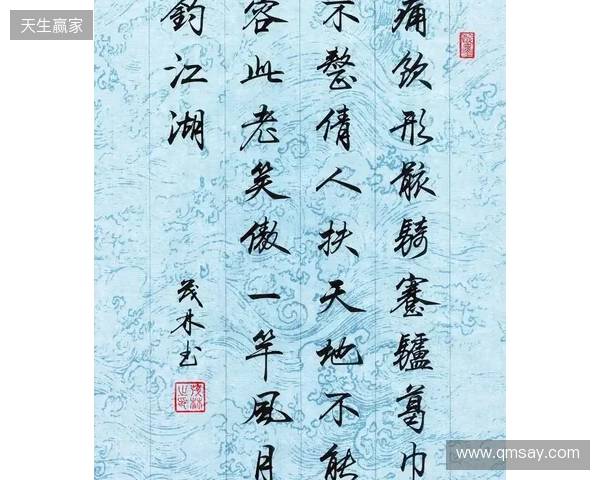 天生赢家
痛飲形骸騎蹇驢葛巾
不整倩人扶天地不能
容此老笑傲一竿風月
釣江湖
茂林书
www.qmsay.com